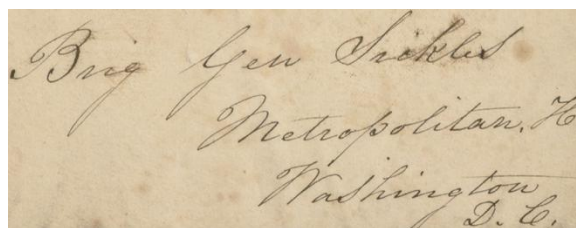 Brig Gen Sickles
Metropolitan. H
Washington
D. C.